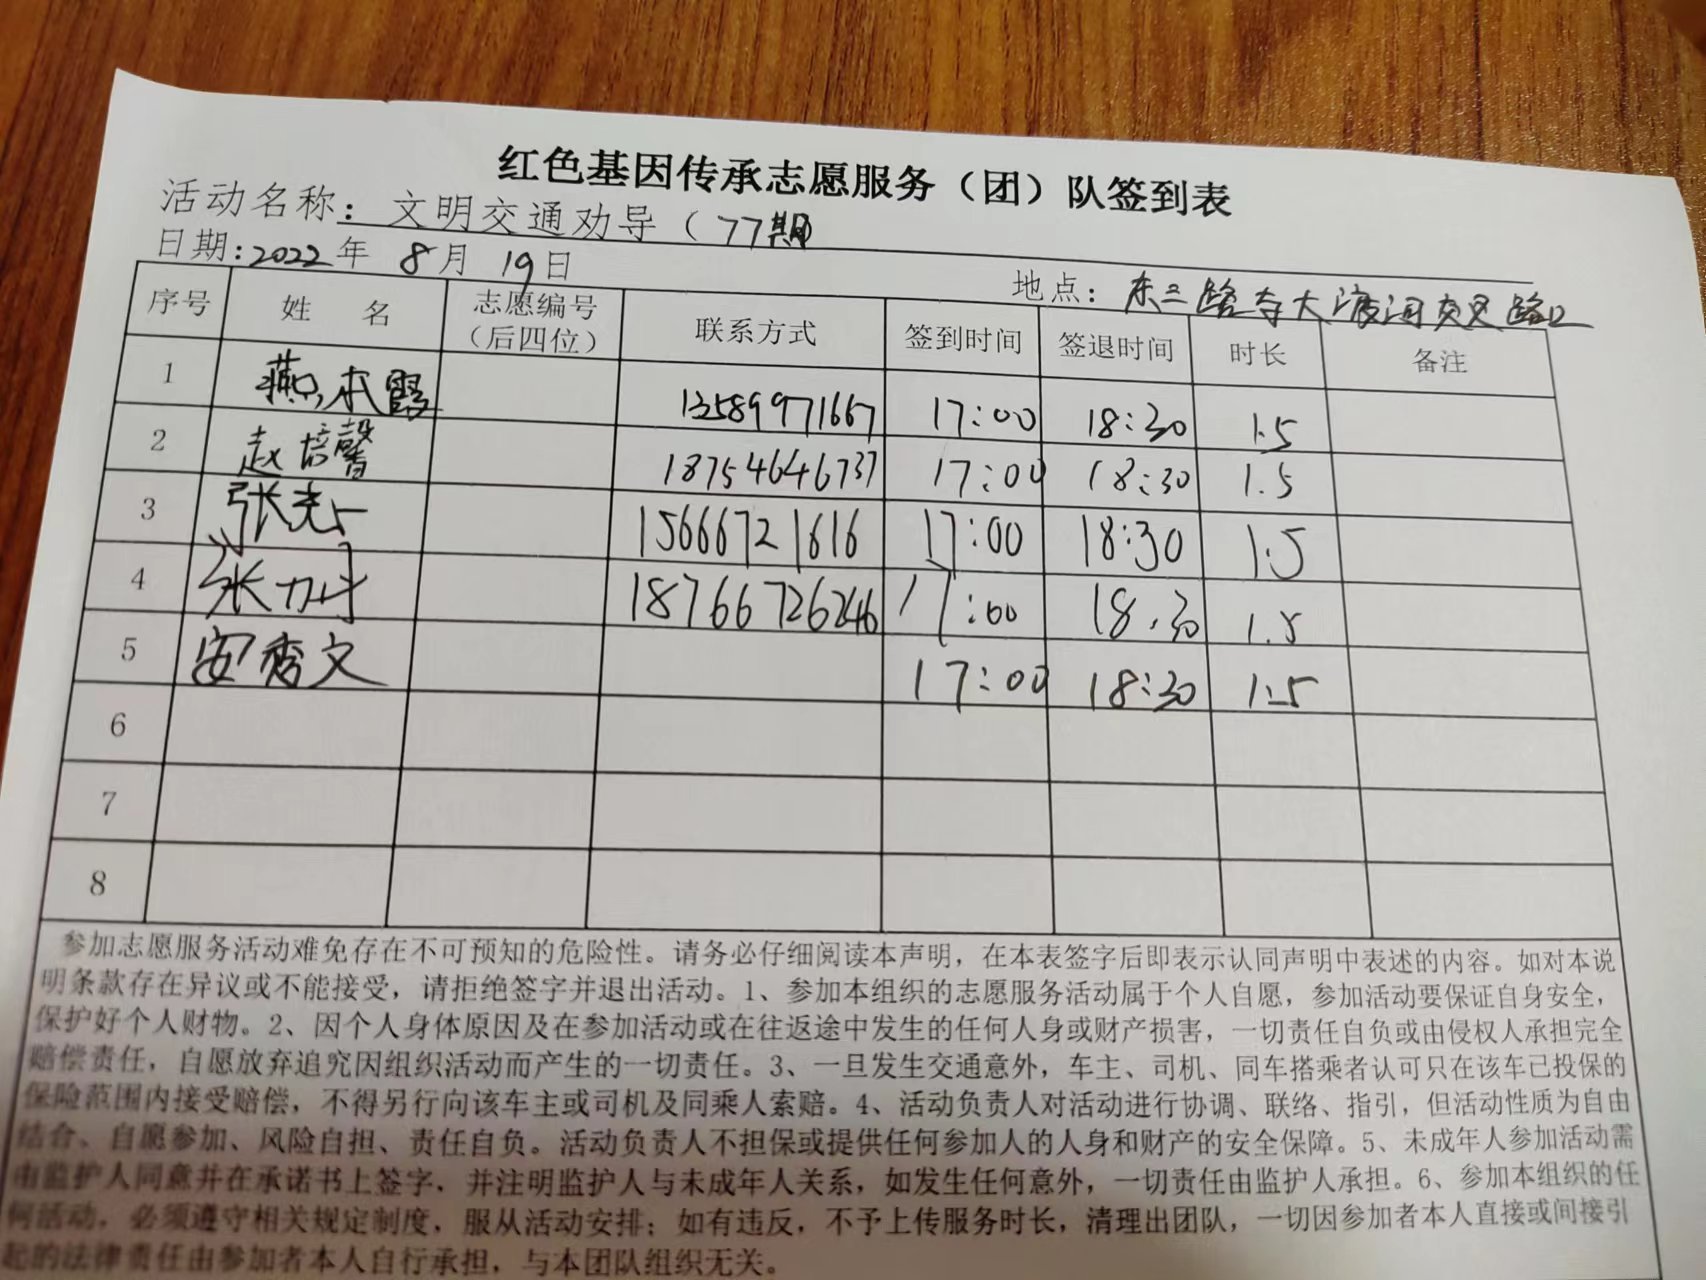 红色基因传承志愿服务（团）队签到表
活动名称：文明交通劝导（77期
日期：2022年 8月 19日
地点：东三路与大渡河交叉路口
序号 姓 名 志愿编号（后四位） 联系方式 签到时间 签退时间 时长 备注
1 燕本霞 13589971667 17:00 18:30 1.5
2 赵培馨 18754646737 17:00 18:30 1.5
3 张 15666721616 17:00 18:30 1.5
4 张 18766726246 17:00 18.30 1.5
5 安秀文 17:00 18:30 1.5
6
7
8
参加志愿服务活动难免存在不可预知的危险性。请务必仔细阅读本声明，在本表签字后即表示认同声明中表述的内容。如对本说
明条款存在异议或不能接受，请拒绝签字并退出活动。1、参加本组织的志愿服务活动属于个人自愿，参加活动要保证自身安全，
保护好个人财物。2、因个人身体原因及在参加活动或在往返途中发生的任何人身或财产损害，一切责任自负或由侵权人承担完全
赔偿责任，自愿放弃追究因组织活动而产生的一切责任。3、一旦发生交通意外，车主、司机、同车搭乘者认可只在该车已投保的
保险范围内接受赔偿，不得另行向该车主或司机及同乘人索赔。4、活动负责人对活动进行协调、联络、指引，但活动性质为自由
结合、自愿参加、风险自担、责任自负。活动负责人不担保或提供任何参加人的人身和财产的安全保障。5、未成年人参加活动需
由监护人同意并在承诺书上签字，并注明监护人与未成年人关系，如发生任何意外，一切责任由监护人承担。6、参加本组织的任
何活动，必须遵守相关规定制度，服从活动安排；如有违反，不予上传服务时长，清理出团队，一切因参加者本人直接或间接引
起的法律责任由参加者本人自行承担，与本团队组织无关。